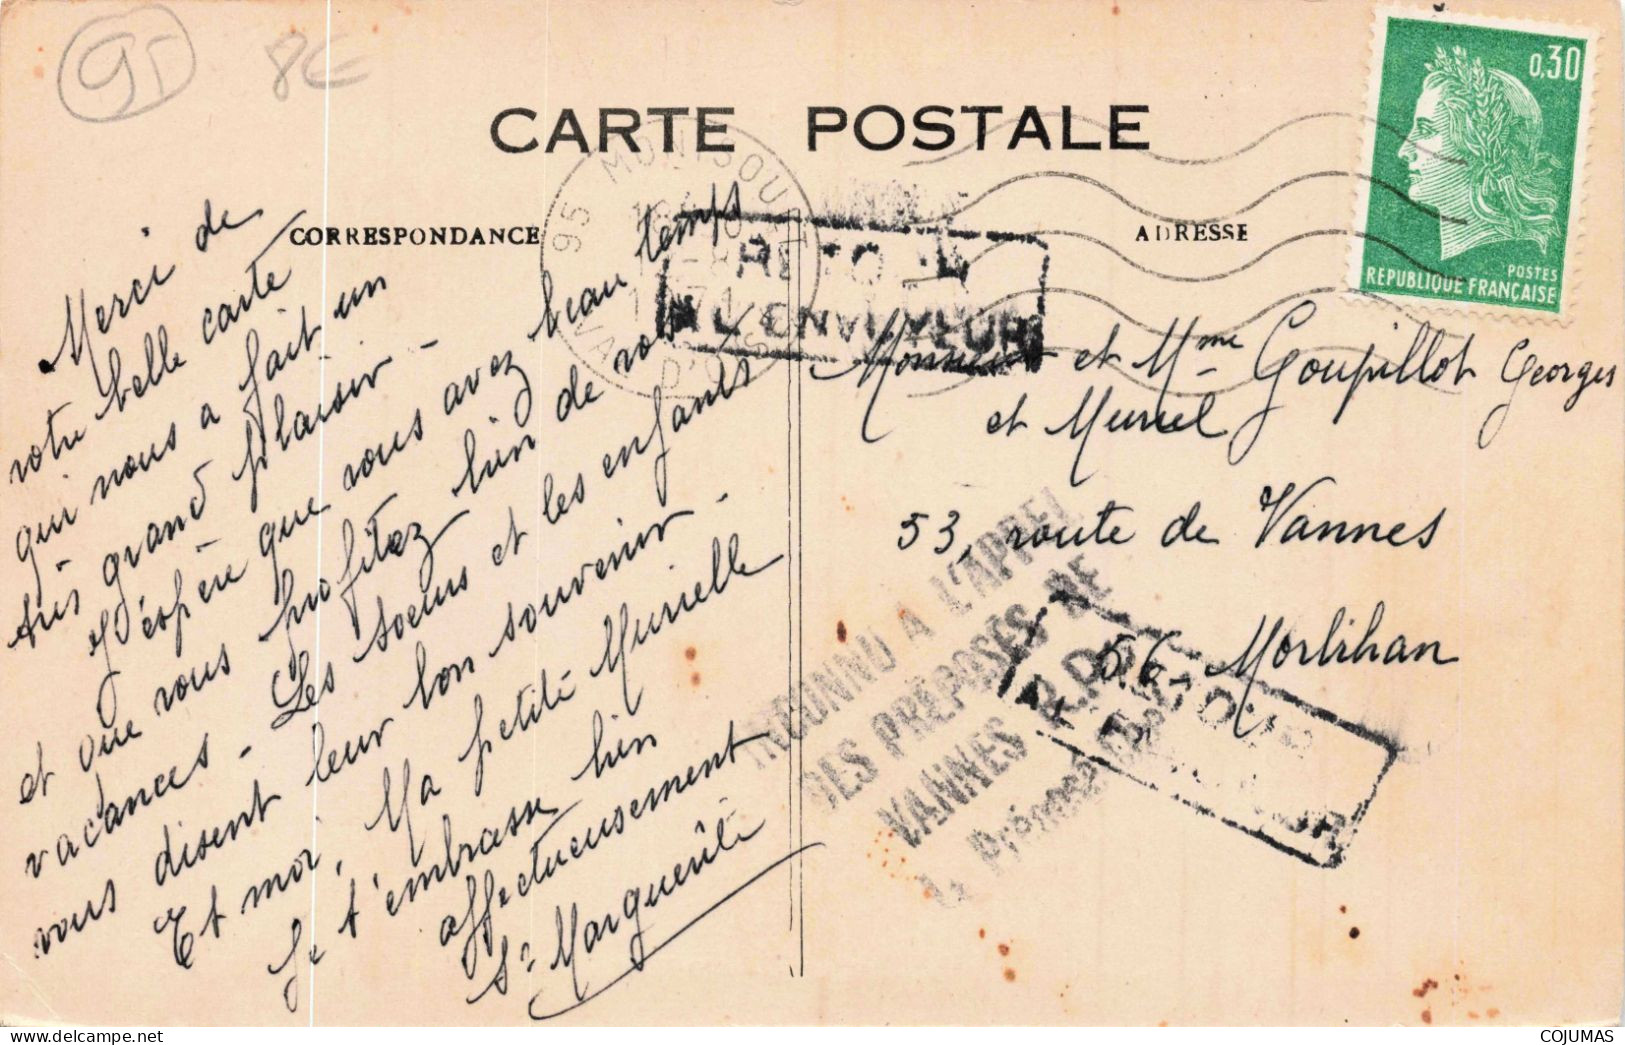 95
8€
CARTE POSTALE
CORRESPONDANCE
ADRESSE
0,30
POSTES
REPUBLIQUE FRANÇAISE
95 MONTSOULT
VAL D'OISE
RETOUR
A L'ENVOYEUR
Merci de
votre belle carte
qui nous a fait un
très grand plaisir -
J'espère que vous avez beau temps
et que vous profitez bien de vos
vacances - Les soeurs et les enfants
vous disent leur bon souvenir -
Et moi, Ma petite Murielle
Je t'embrasse bien
affectueusement
Sr Marguerite
Monsieur et Mme Goupillot Georges
et Muriel
53, route de Vannes
56 - Morbihan
INCONNU A L'APPEL
DES PRÉPOSÉS DE
VANNES R.P.
Le Préposé
RETOUR
A L'ENVOYEUR
COJUMAS